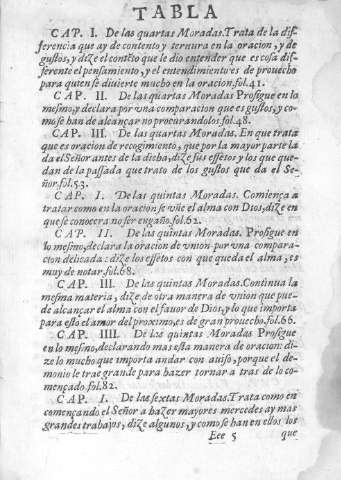 TABLA
CAP. I. De las quartas Moradas. Trata de la dif-
ferencia que ay de contento y ternura en la oracion, y de
gustos, y dize el contẽto que le dio entender que es cosa di-
fferente el pensamiento, y el entendimiento: es de prouecho
para quien se diuierte mucho en la oracion. fol. 41.
CAP. II. De las quartas Moradas Prosigue en lo
mesmo, y declara por vna comparacion que es gustos, y co-
mo se han de alcançar no procurandolos. fol. 48.
CAP. III. De las quartas Moradas. En que trata
que es oracion de recogimiento, que por la mayor parte la
da el Señor antes de la dicha, dize sus effetos y los que que-
dan de la passada que trato de los gustos que da el Se-
ñor. fol. 53.
CAP. I. De las quintas Moradas. Comiença a
tratar como en la oracion se vñe el alma con Dios, dize en
que se conocera no ser engaño. fol. 62.
CAP. II. De las quintas Moradas. Prosigue en
lo mesmo, declara la oracion de vnion por vna compara-
cion delicada: dize los effetos con que queda el alma, es
muy de notar. fol. 68.
CAP. III. De las quintas Moradas. Continua la
mesma materia, dize de otra manera de vnion que pue-
de alcançar el alma con el fauor de Dios, y lo que importa
para esto el amor del proximo, es de gran prouecho. fol. 66.
CAP. IIII. De las quintas Moradas Prosigue
en lo mesmo, declarando mas esta manera de oracion: di-
ze lo mucho que importa andar con auiso, porque el de-
monio le trae grande para hazer tornar a tras de lo co-
mençado. fol. 82.
CAP. I. De las sextas Moradas. Trata como en
començando el Señor a hazer mayores mercedes ay mas
grandes trabajos, dize algunos, y como se han en ellos los
Eee 5 que